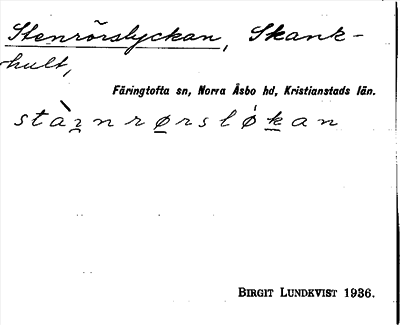 Stenrörslyckan, Skank-
hult,
Färingtofta sn, Norra Åsbo hd, Kristianstads län.
stàꝛnrø̲rslǿk̲an
BIRGIT LUNDKVIST 1936.